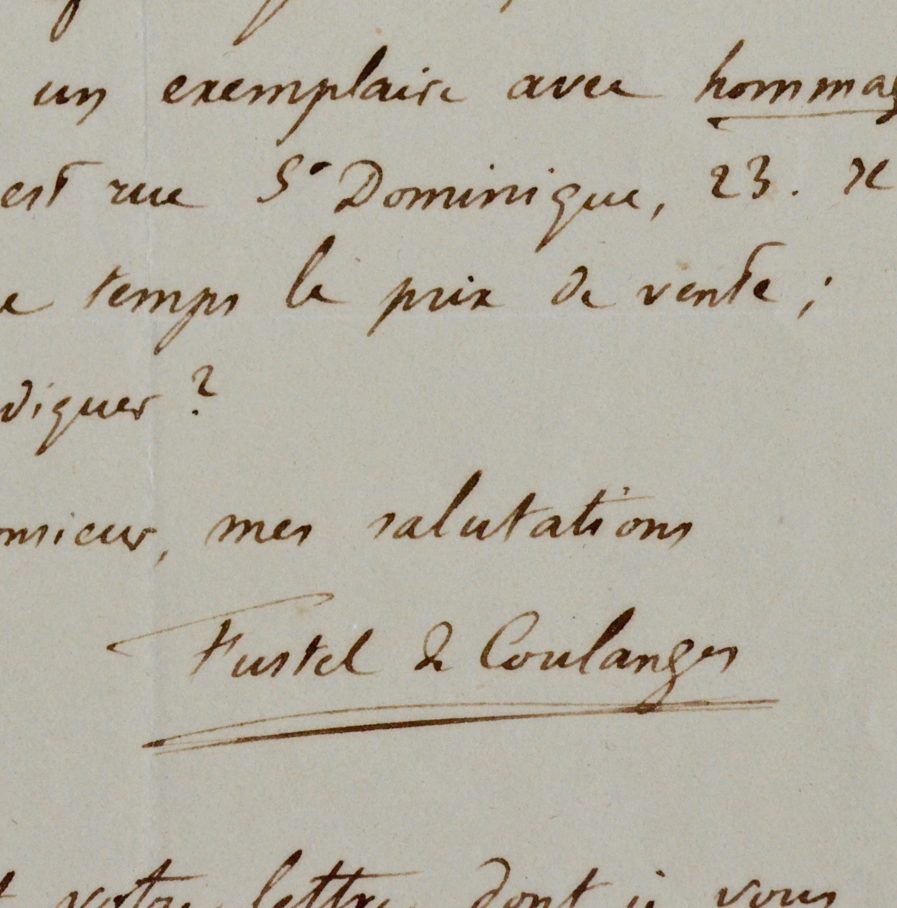 un exemplaire avec hommag
est rue St Dominique, 23. Je
e temps le prix de vente ;
diquer ?
onsieur, mes salutations
Fustel de Coulanges
votre lettre dont je vous